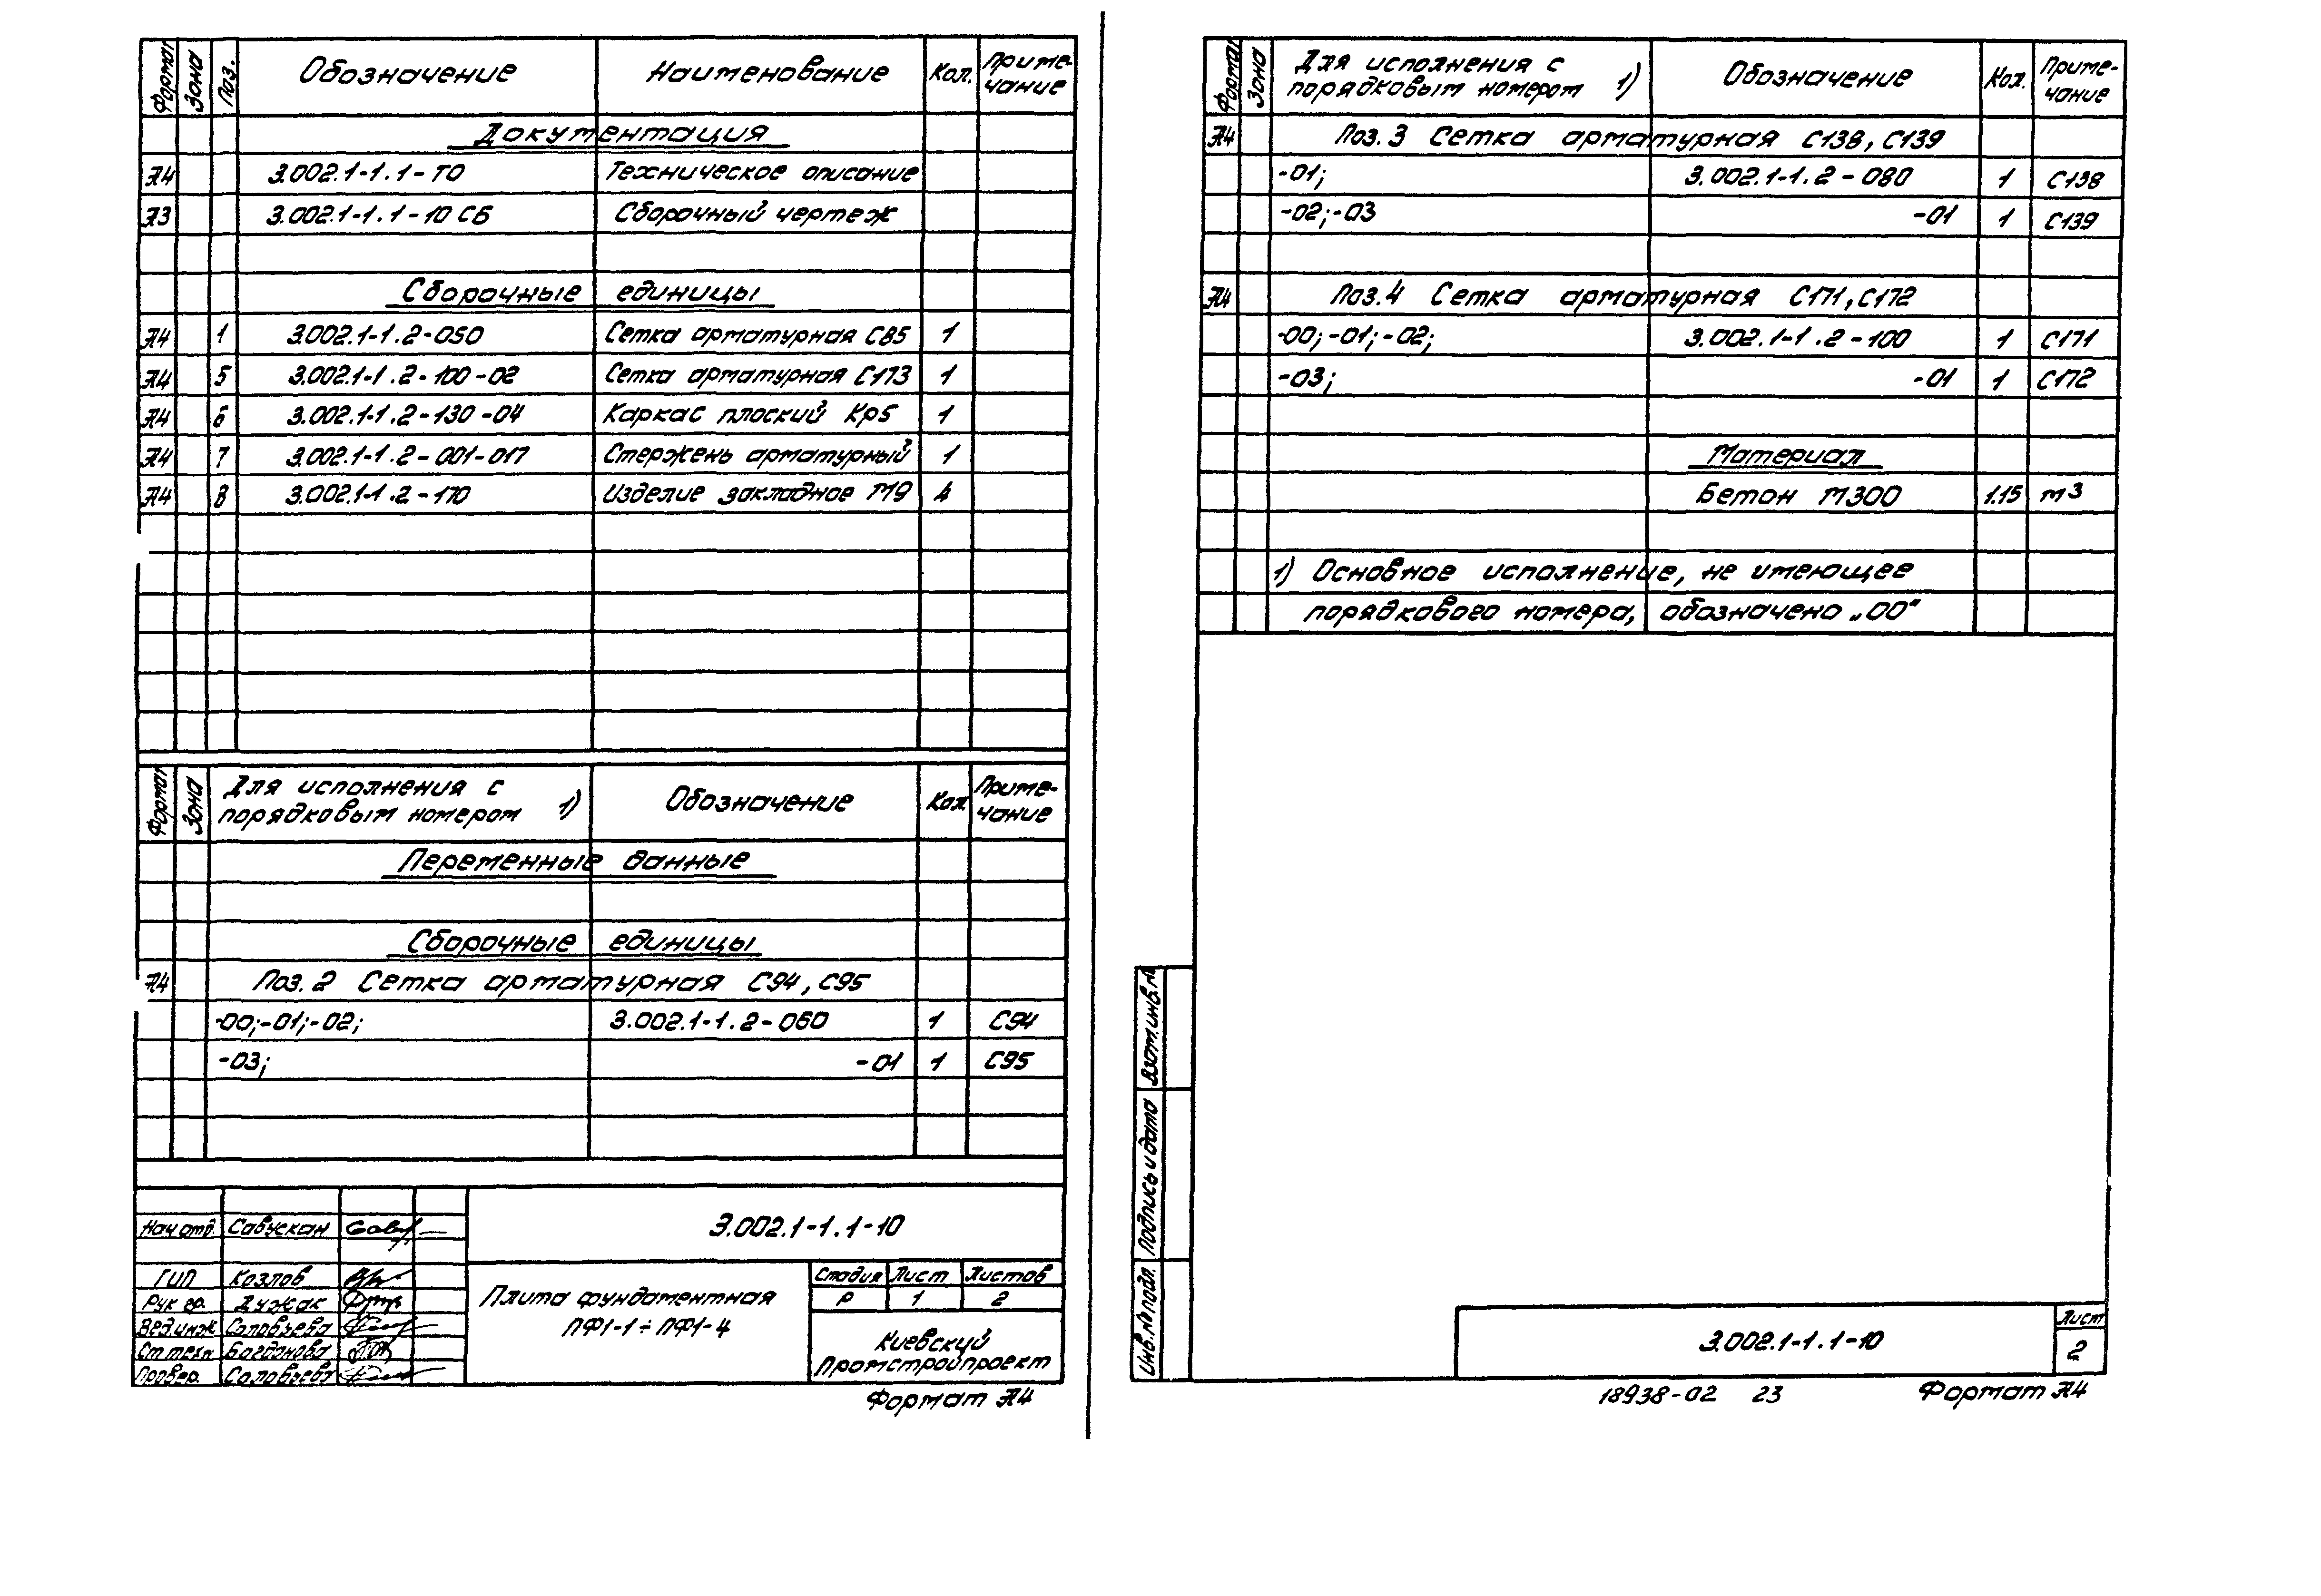 Формат Зона Поз. Обозначение Наименование Кол. Приме-
чание
Документация
А4 3.002.1-1.1-ТО Техническое описание
А3 3.002.1-1.1-10 СБ Сборочный чертеж
Сборочные единицы
А4 1 3.002.1-1.2-050 Сетка арматурная С85 1
А4 5 3.002.1-1.2-100-02 Сетка арматурная С173 1
А4 6 3.002.1-1.2-130-04 Каркас плоский Кр5 1
А4 7 3.002.1-1.2-001-017 Стержень арматурный 1
А4 8 3.002.1-1.2-170 Изделие закладное М9 4
Формат Зона Для исполнения с
порядковым номером 1) Обозначение Кол. Приме-
чание
Переменные данные
Сборочные единицы
А4 Поз. 2 Сетка арматурная С94, С95
-00;-01;-02; 3.002.1-1.2-060 1 С94
-03; -01 1 С95
Нач отд. Савускан
ГИП Козлов
Рук гр. Дужак
Вед.инж Соловьева
Ст техн Богданова
Провер. Соловьева
3.002.1-1.1-10
Плита фундаментная
ПФ1-1÷ПФ1-4
Стадия Лист Листов
Р 1 2
Киевский
Промстройпроект
Формат А4
Формат Зона Для исполнения с
порядковым номером 1) Обозначение Кол. Приме-
чание
А4 Поз. 3 Сетка арматурная С138, С139
-01; 3.002.1-1.2-080 1 С138
-02;-03 -01 1 С139
А4 Поз. 4 Сетка арматурная С171, С172
-00;-01;-02; 3.002.1-1.2-100 1 С171
-03; -01 1 С172
Материал
Бетон М300 1.15 м3
1) Основное исполнение, не имеющее
порядкового номера, обозначено „00"
Взам.инв.№
Подпись и дата
Инв.№подл.
3.002.1-1.1-10
Лист
2
18938-02 23 Формат А4